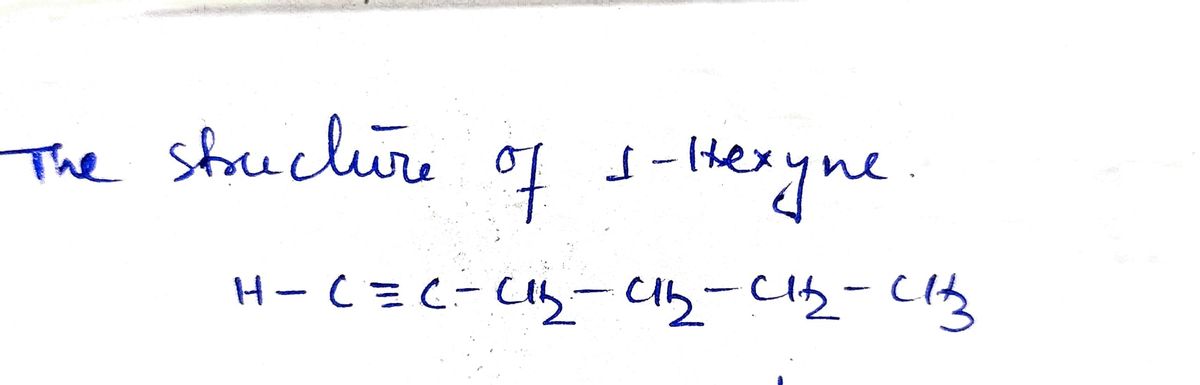 The structure of 1-Hexyne.
H-C≡C-CH2-CH2-CH2-CH3